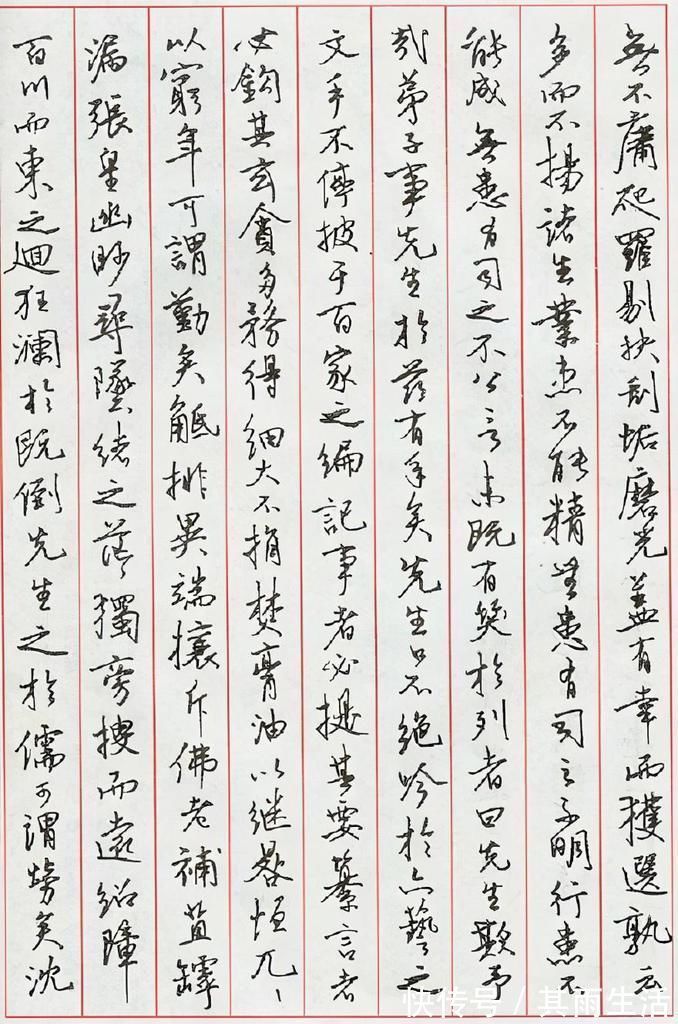 無不庸爬羅剔抉刮垢磨光盖有幸而獲選孰云
多而不揚諸生業患不能精無患有司之不明行患不
能成無患有司之不公言未既有笑於列者曰先生欺予
哉弟子事先生於茲有年矣先生口不絕吟於六藝之
文手不停披于百家之編記事者必提其要纂言者
必鈎其玄貪多務得細大不捐焚膏油以继晷恒兀丶
以窮年可謂勤矣觝排異端攘斥佛老補苴罅
漏張皇幽眇尋墜緒之茫獨旁搜而遠紹障
百川而東之迴狂瀾於既倒先生之於儒可謂勞矣沈
快传号/其雨生活